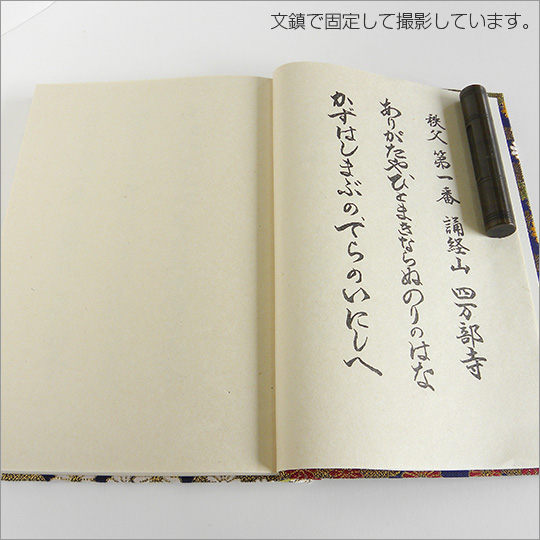 文鎮で固定して撮影しています。
秩父 第一番 誦経山 四万部寺
ありがたやひとまきならぬのりのはな
かずはしまぶのてらのいにしへ